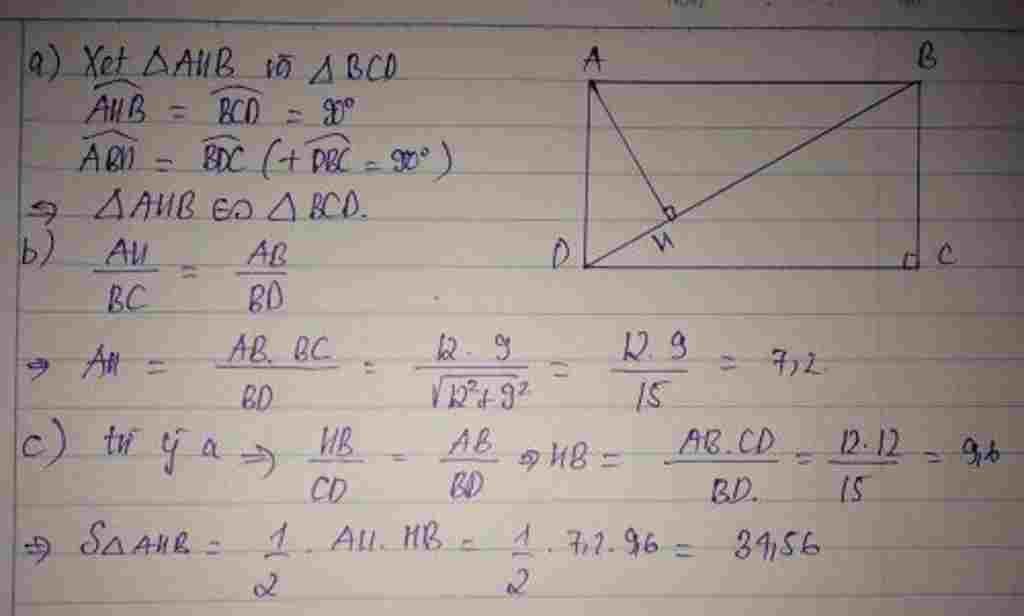 a) Xét △AHB và △BCD
AHB = BCD = 90°
ABH = BDC (+DBC = 90°)
⇒ △AHB ∽ △BCD.
b) AH/BC = AB/BD
⇒ AH = AB.BC/BD = 12.9/√12²+9² = 12.9/15 = 7,2
c) từ ý a ⇒ HB/CD = AB/BD ⇒ HB = AB.CD/BD. = 12.12/15 = 9,6
⇒ S△AHB = 1/2 . AH.HB = 1/2 . 7,2.9,6 = 34,56
A B
D H C